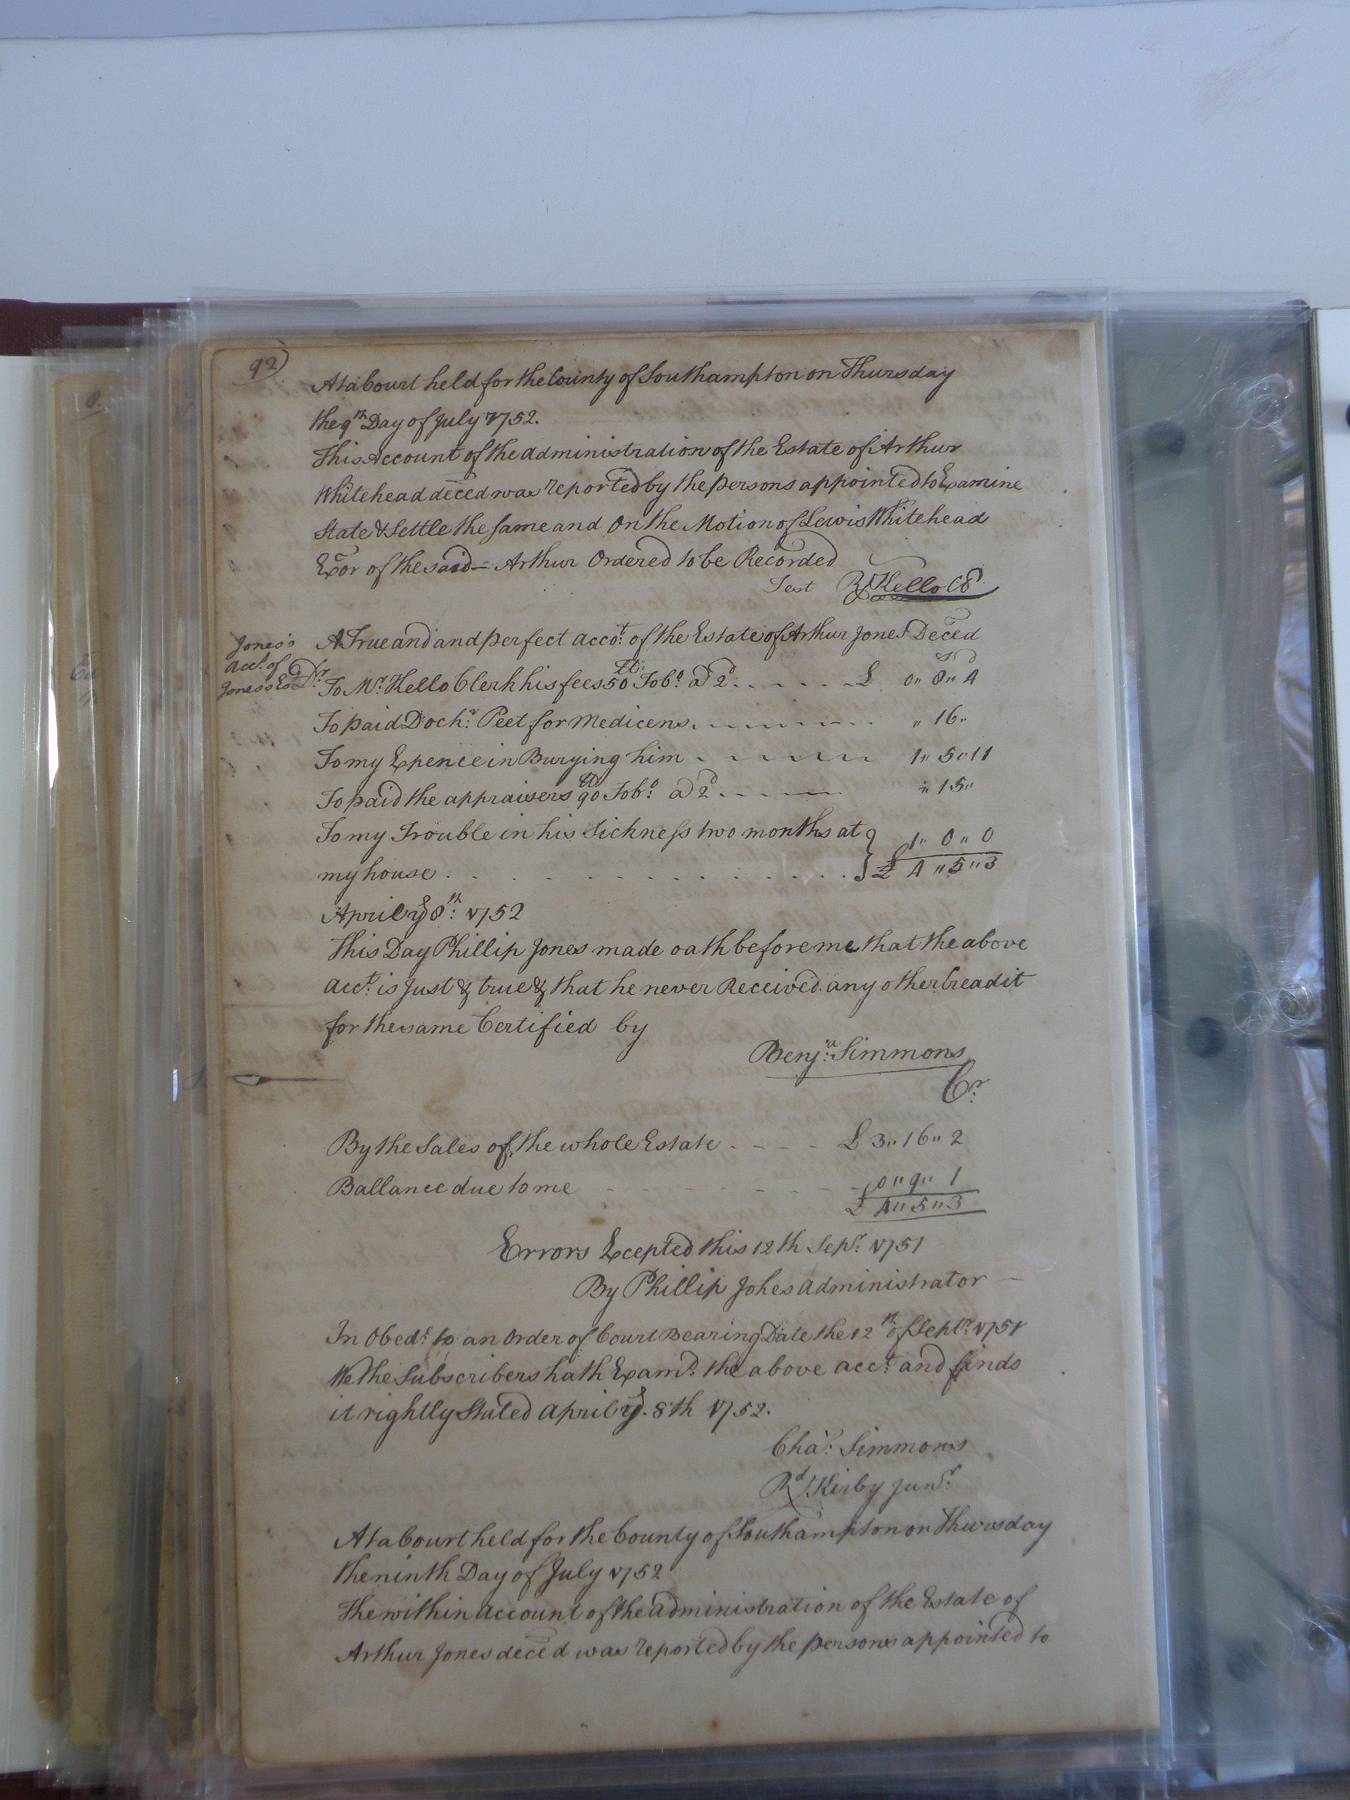 92)
At a Court held for the County of Southampton on Thursday
the 9th Day of July 1752.
This Account of the administration of the Estate of Arthur
Whitehead deced was reported by the persons appointed to Examine
State & Settle the same and On the Motion of Lewis Whitehead
Exor of the said Arthur Ordered to be Recorded
Test R Kello CC
Jones's
Acct. of
Jones's Es
A True and and perfect Acco.t of the Estate of Arthur Jones Deced
Dr. To Mr. Kello Clerk his fees 50 lt. Tob.o a 2d. £ 0,, 8,, 4
To paid Doctr. Peet for Medicens ,, 16,,
To my Expence in Burying him 1,, 5,, 11
To paid the appraisers 90 lt Tob.o a 2d ,, 15,,
To my Trouble in his Sickness two months at } 1,, 0,, 0
my house } £ 4,, 5,, 3
April ye 8th. 1752
This Day Phillip Jones made oath before me that the above
Acct. is Just & true & that he never Received any other Creadit
for the same Certified by
Benjn. Simmons
Cr.
By the Sales of the whole Estate £ 3,, 16,, 2
Ballance due to me 0,, 9,, 1
£ 4,, 5,, 3
Errors Excepted this 12th Sepr. 1751
By Phillip Jones Administrator
In Obedc. to an Order of Court Bearing Date the 12th of Septr. 1751
We the Subscribers hath Examd. the above acct. and finds
it rightly Stated April ye. 8th 1752.
Chas. Simmons
Rd. Kirby Junr.
At a Court held for the County of Southampton on Thursday
the ninth Day of July 1752
The within Account of the administration of the Estate of
Arthur Jones deced was reported by the persons appointed to